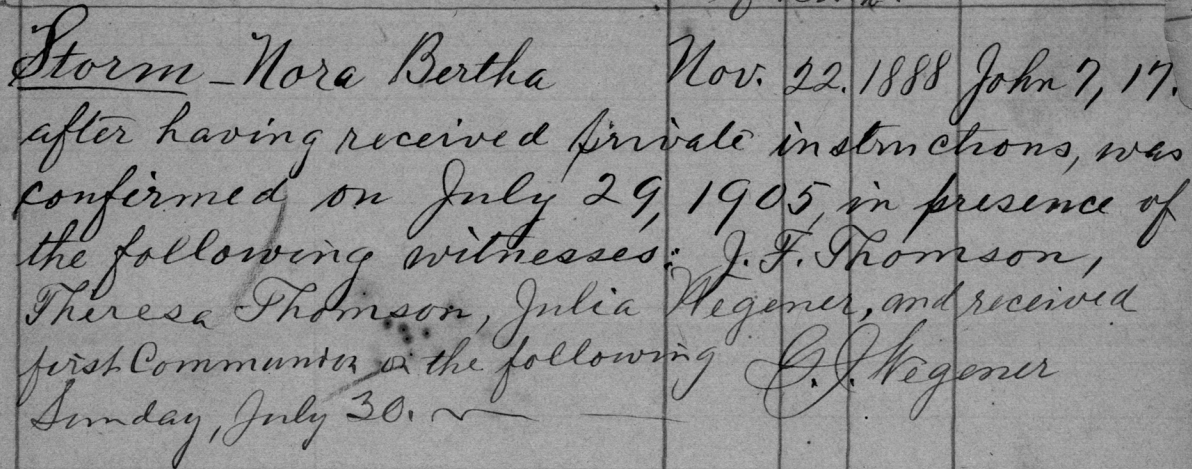 Storm - Nora Bertha Nov. 22. 1888 John 7, 17.
after having received private instructions, was
confirmed on July 29, 1905, in presence of
the following witnesses: J. F. Thomson,
Theresa Thomson, Julia Wegener, and received
first Communion on the following G. J. Wegener
Sunday, July 30.